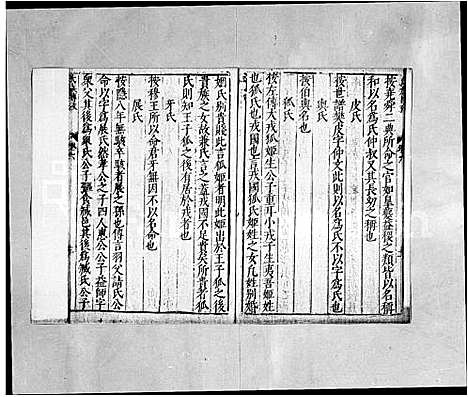 按堯舜二典所命之官如皐䕫益稷之類皆以名稱
和以名爲氏仲叔又其長幼之稱也
皮氏
按世譜樊皮字仲文此則以名爲氏不以字爲氏也
輿氏
按伯輿名也
狐氏
按左傳大戎狐姬生公子重耳小戎子生夷吾姬姓
也狐氏也戎國也言戎國狐氏姬姓之女凡姓別婚
姻氏別貴賤此言狐姬者明此姬出於王子狐之後
貴族之女故兼氏言之蓋戎國不足貴矣所貴者狐
氏則知王子狐之後有居於戎者也
牙氏
按穆王所以命君牙無因不以名命也
展氏
按隱八年無駭卒駭者展之孫也得言羽父請氏公
命以字爲展氏然孝公之子四人惠公公子益師字
衆父其後爲衆氏公子彄食臧邑其後爲臧氏公子